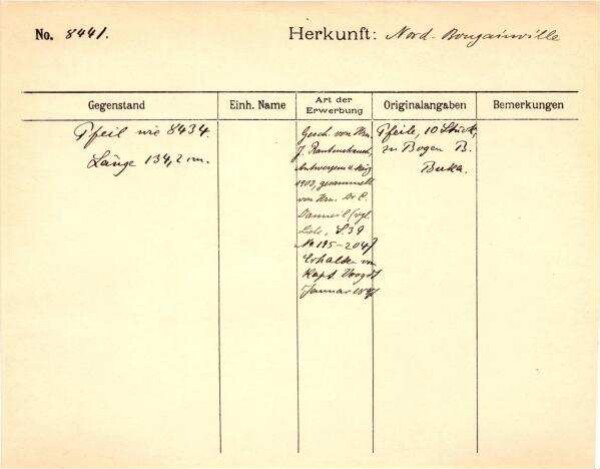 No. 8441. Herkunft: Nord-Bougainville
Gegenstand Einh. Name Art der Erwerbung Originalangaben Bemerkungen
Pfeil wie 8434.
Länge 134,2 cm.
Gesch. von Hrn.
J.
Antwerpen
1903, gesammelt
von Hrn. Dr. C.
Danneil (vgl.
S. 39
No 195-204)
Erhalten von
Kapt.
Januar
Pfeile, 10 Stück,
zu Bogen B.
Buka.